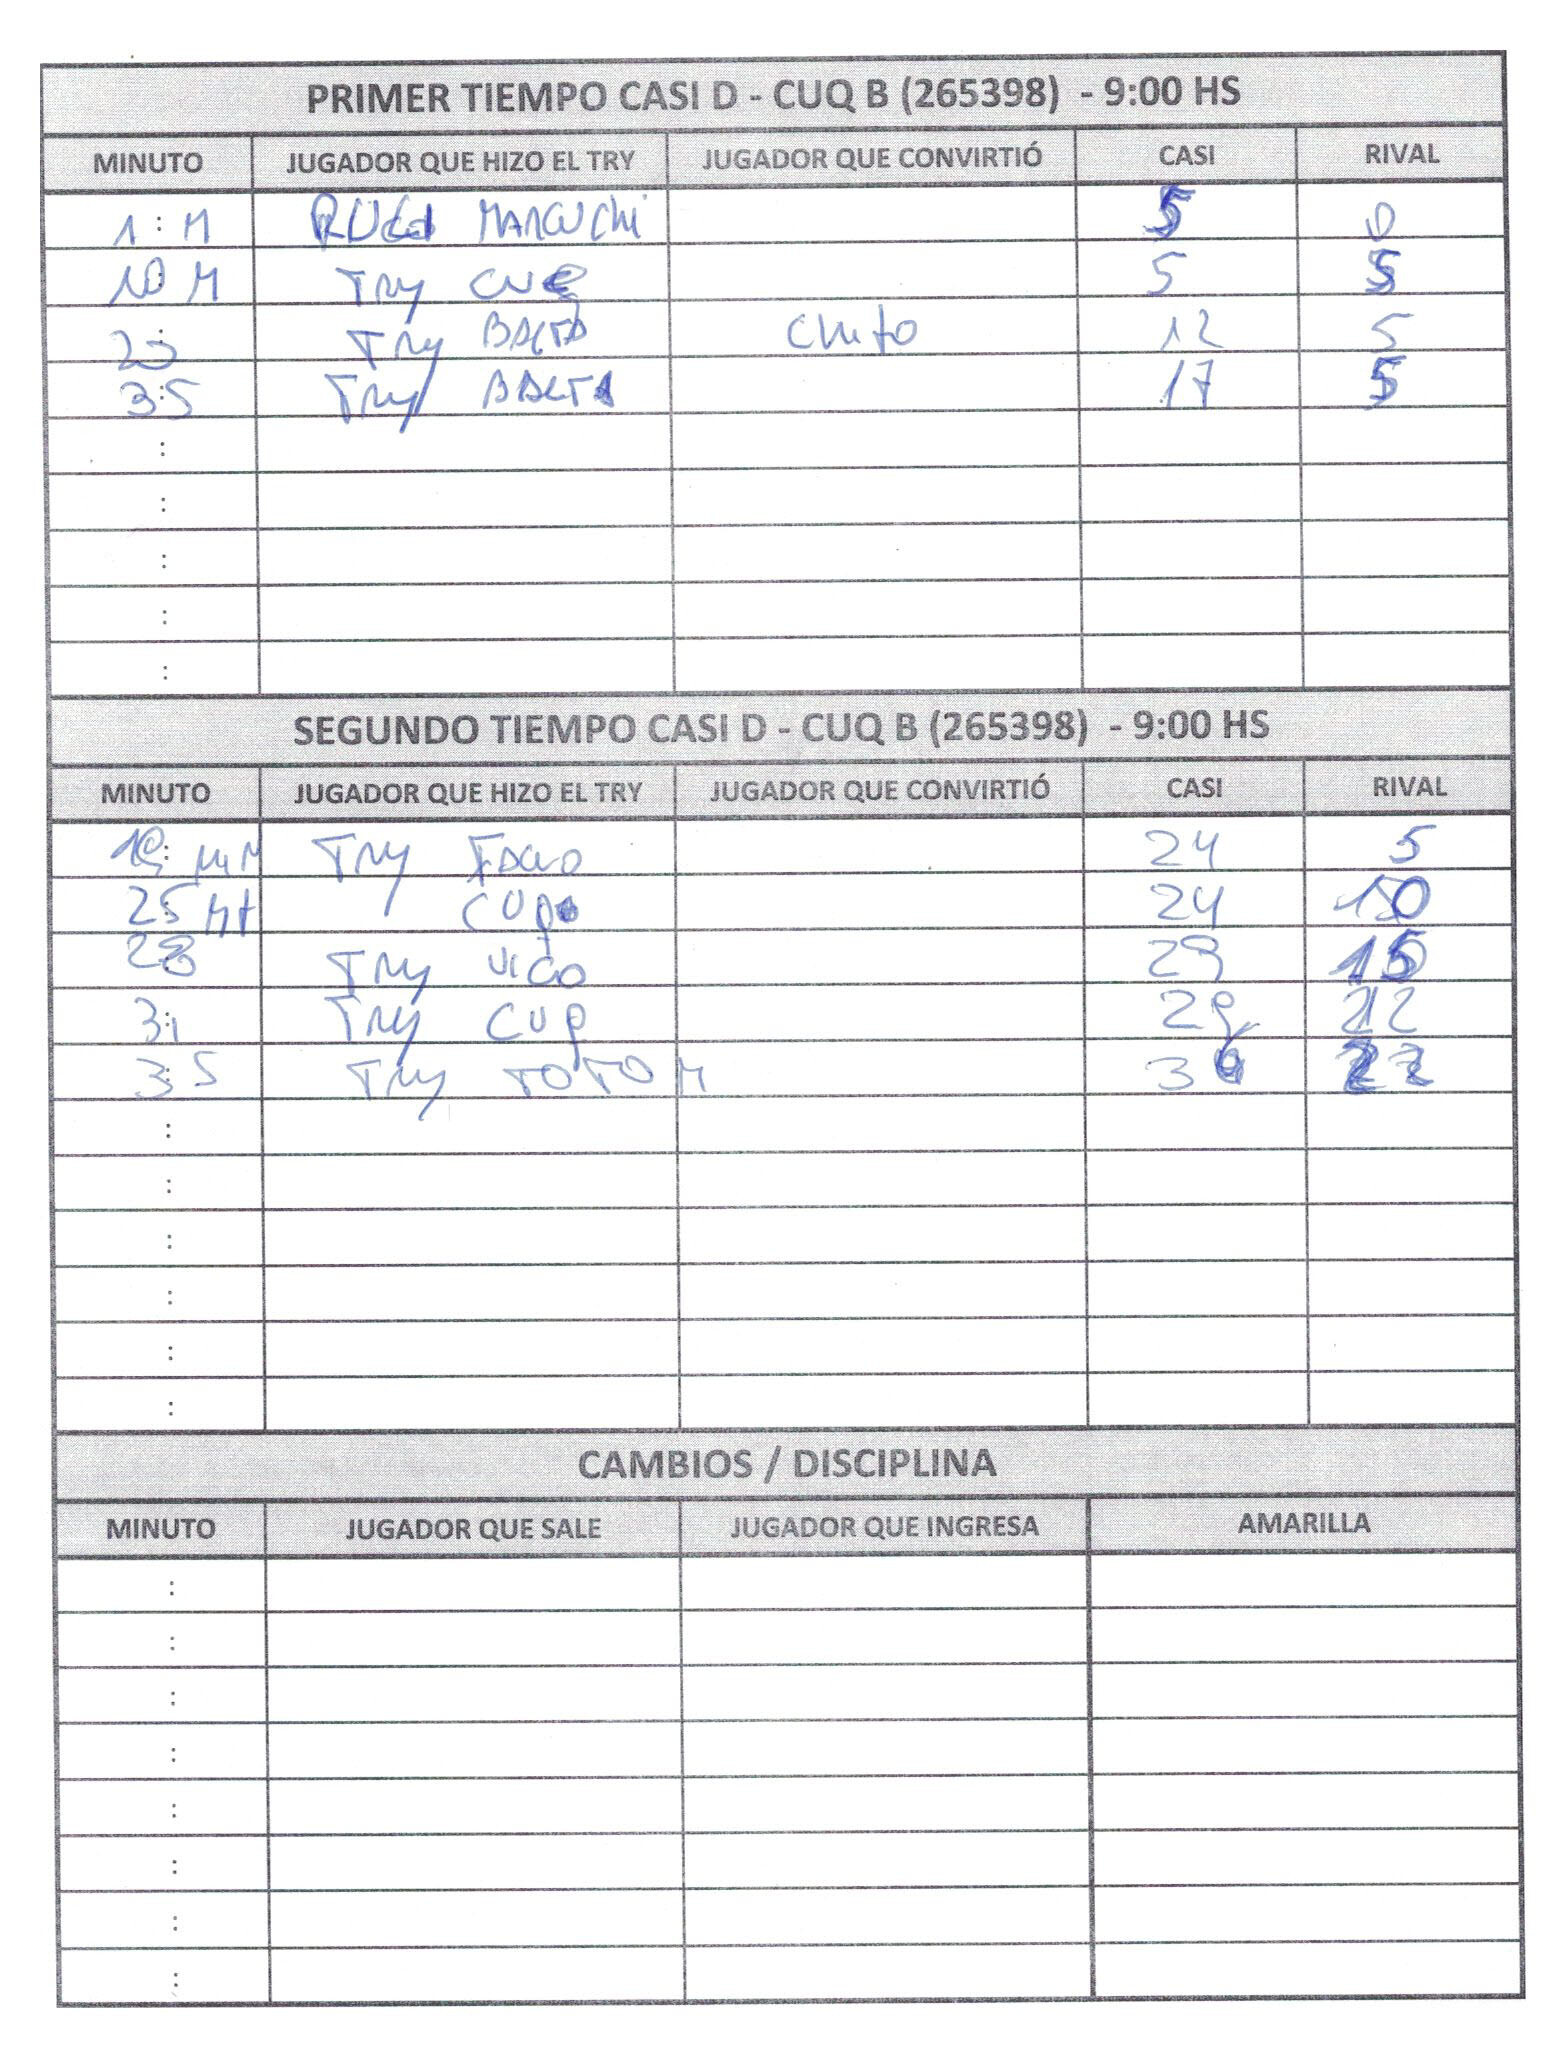 PRIMER TIEMPO CASI D - CUQ B (265398) - 9:00 HS
MINUTO JUGADOR QUE HIZO EL TRY JUGADOR QUE CONVIRTIÓ CASI RIVAL
1 : M MARCUCHI 5 0
10 : M Try CUQ 5 5
Try BALTA Chito 12 5
3:5 Try BALTA 17 5
:
:
:
:
:
SEGUNDO TIEMPO CASI D - CUQ B (265398) - 9:00 HS
MINUTO JUGADOR QUE HIZO EL TRY JUGADOR QUE CONVIRTIÓ CASI RIVAL
MIN Try FACUO 24 5
25 CUQ 24 10
28 Try VICO 29 15
3:1 Try CUQ 29 22
3:5 Try TOTO M 22
:
:
:
:
:
:
CAMBIOS / DISCIPLINA
MINUTO JUGADOR QUE SALE JUGADOR QUE INGRESA AMARILLA
:
:
:
:
:
:
:
: